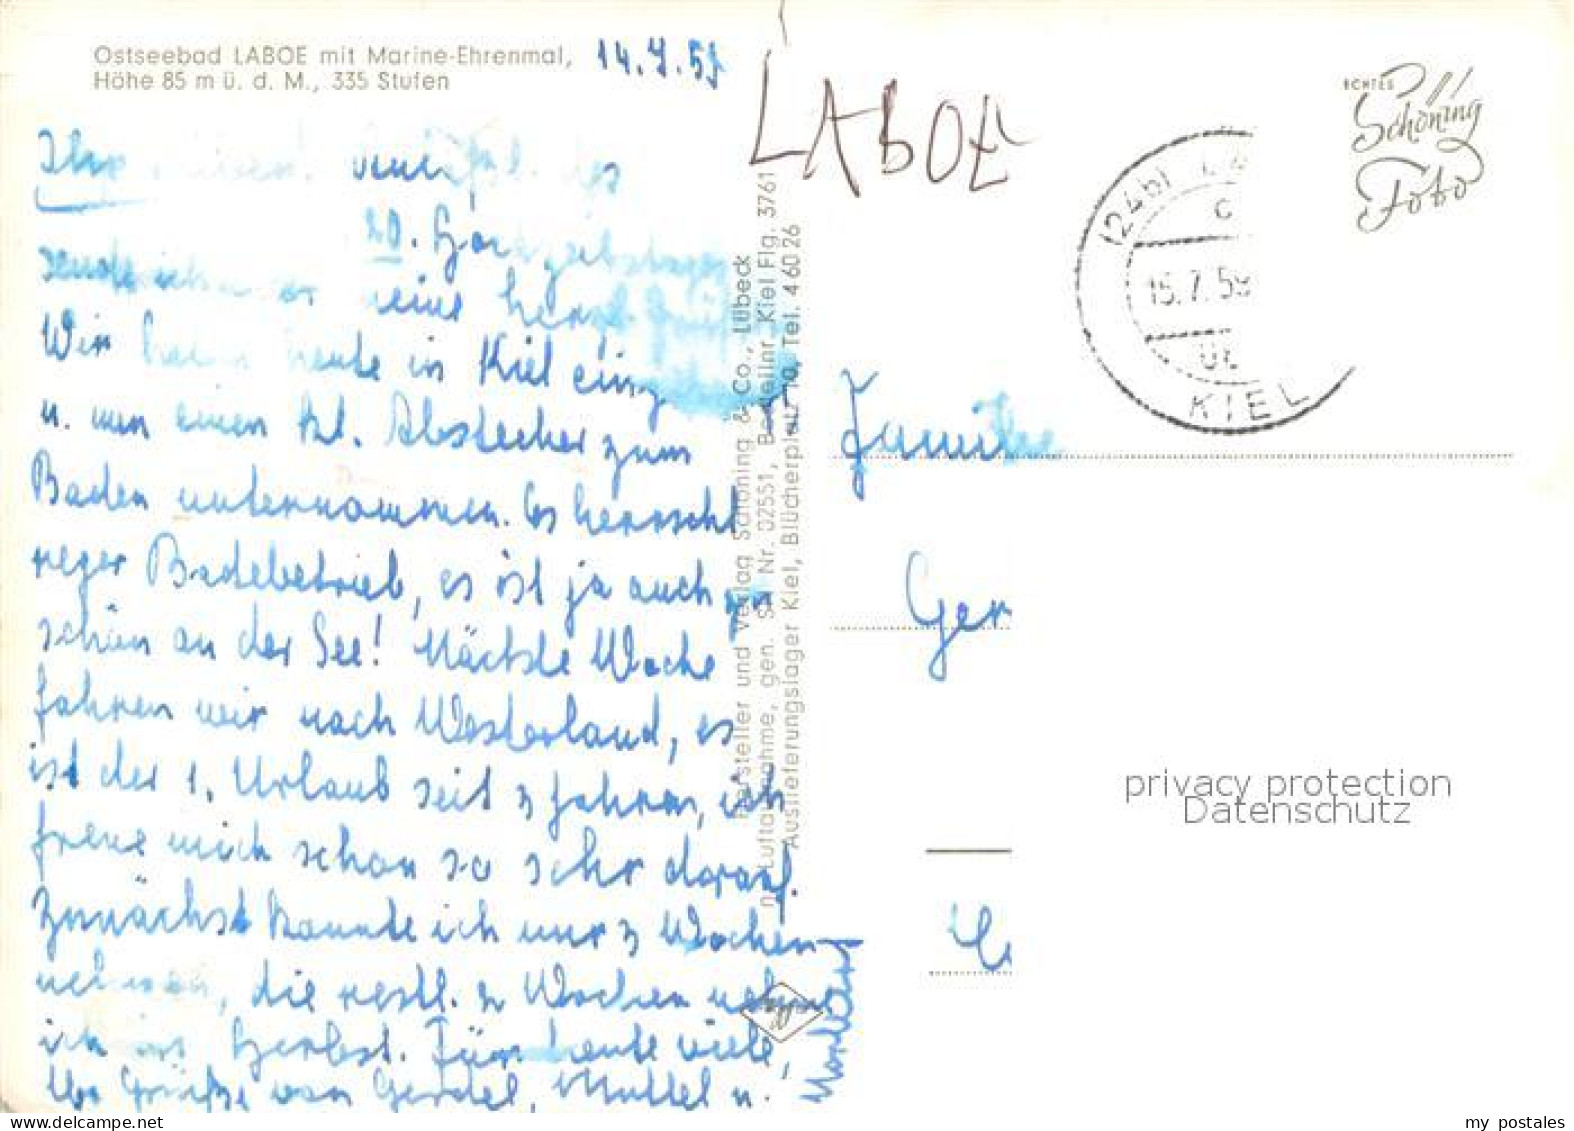 Ostseebad LABOE mit Marine-Ehrenmal,
Höhe 85 m ü. d. M., 335 Stufen
14.7.59
LABOE
ECHTES
Schöning
Foto
(24b)
c
15.7.59
KIEL
Ihr des
20. Hochzeitstages
sende ich eine herzl.
Wir heute in Kiel
u. nun einen kl. Abstecher zum
Baden unternommen. Es herrscht
reger Badebetrieb, es ist ja auch
schön an der See! Nächste Woche
fahren wir nach Westerland, es
ist der 1. Urlaub seit 3 Jahren, ich
freue mich schon so sehr darauf.
Zunächst konnte ich nur 3 Wochen
nehmen, die restl. 2 Wochen nehme
ich im Herbst. Für heute viele
lbe Grüße von Gerdel, Muttel u.
Hersteller und Verlag Schöning & Co., Lübeck
Luftaufnahme, gen. SH Nr. 02551, Bestellnr. Kiel Flg. 3761
Auslieferungslager Kiel, Blücherplatz 10, Tel. 4 60 26
Familie
Ger
privacy protection
Datenschutz
my postales